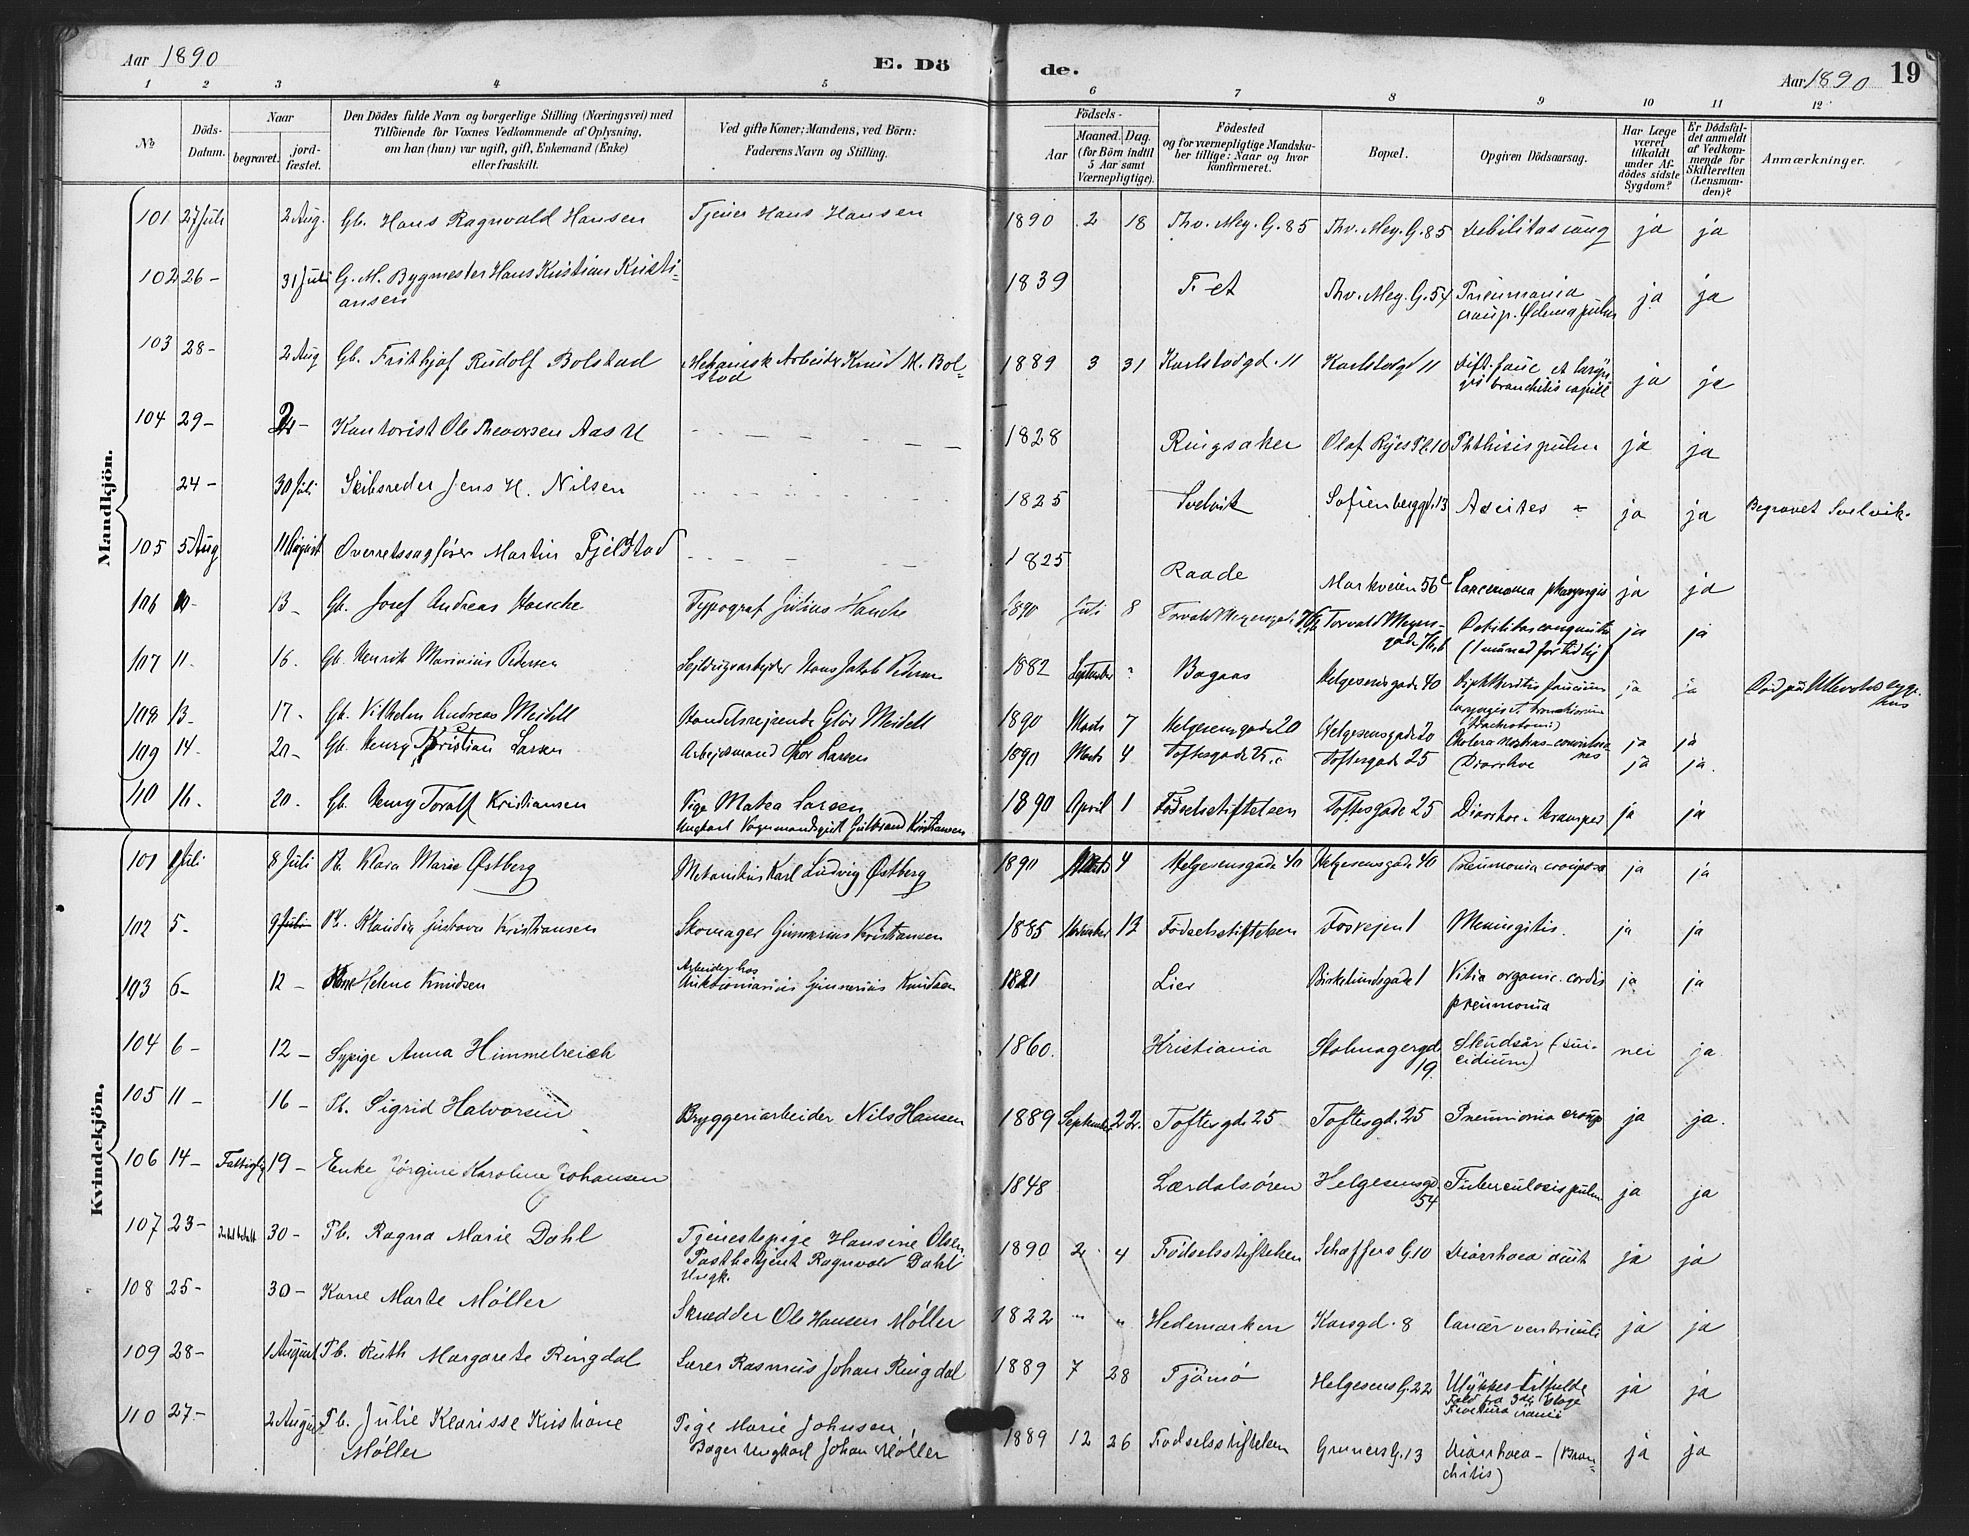 Aar 1890
E. Dö
de.
Aar 1890
19
1 2 3 4 5 6 7 8 9 10 11 12
No
Döds-Datum.
Naar
begravet. jord-fæstet.
Den Dödes fulde Navn og borgerlige Stilling (Næringsvei) med
Tilföiende for Voxnes Vedkommende af Oplysning,
om han (hun) var ugift, gift, Enkemand (Enke)
eller fraskilt.
Ved gifte Koner: Mandens, ved Börn:
Faderens Navn og Stilling.
Födsels-
Aar Maaned. Dag.
(for Börn indtil
5 Aar samt
Værnepligtige).
Födested
og for værnepligtige Mandska-
ber tillige: Naar og hvor
konfirmeret.
Bopæl.
Opgiven Dödsaarsag.
Har Læge
været
tilkaldt
under Af-
dödes sidste
Sygdom?
Er Dödsfal-
det anmeldt
af Vedkom-
mende for
Skifteretten
(Lensman-
den)?
Anmærkninger.
Mandkjön.
101 27 Juli 2 Aug. Gb. Hans Ragnvald Hansen Tjener Hans Hansen 1890 2 18 Thv. Mey. G. 85 Thv. Mey. G. 85 Debilitas cong ja ja
102 26 – 31 Juli G. M. Bygmester Hans Kristian Kristi-
ansen 1839 Fet Thv. Mey. G. 54 Pneumonia
croup. Ødema pulm ja ja
103 28 – 2 Aug Gb. Frithjof Rudolf Bolstad Mekanisk Arbeider Knud M. Bol-
stad 1889 3 31 Karlstadgd. 11 Karlstadgd 11 Dift. fauc et laryn
gis bronchitis capill ja ja
104 29 – 2 – Kontorist Ole Theversen Aas 1828 Ringsaker Olaf Ryes Pl. 10 Phthisis pulm ja ja
24 – 30 Juli Skibsreder Jens H. Nilsen 1825 Svelvik Sofienberggd. 13 Ascites ja ja Begravet Svelvik.
105 5 Aug 11 August Overretssagfører Martin Fjeldstad 1825 Raade Markveien 56 c Carcenoma pharyngis ja ja
106 10 – 13 – Gb. Josef Andreas Hauche Typograf Julius Hauche 1890 Juli 8 Torvald Meyersgade Torvald Meyers-
gade Debilitas congenita
(1 maaned for tidlig) ja ja
107 11. 16. Gb. Henrik Marinius Pedersen Hans Jakob Pedersen 1882 September " Bagaas Helgesensgade 40 Diphtheritis faucium
laryngis et bronchiorum
(Tracheotomi) ja ja Död på Ullevolds syge-
hus
108 13. 17. Gb. Vilhelm Andreas Meidell Handelsrejsende Meidell 1890 Marts 7 Helgesensgade 20 Helgesensgade 20 Cholera nostras – convulsio-
nes ja ja
109 14. 20 – Gb. Henry Kristian Larsen Arbejdsmand Larsen 1890 Marts 4 Toftesgade 25 Toftesgade 25 Diarrhoe ja ja.
110 16. 20. Gb. Henry Toralf Kristiansen Pige Matea Larsen
Ungkarl Vognmandsgut Gulbrand Kristiansen 1890 April 1 Födselsstiftelsen Toftesgade 25 Diarrhoe. Kramper ja ja
Kvindekjön.
101 1 Juli 8 Juli Pb. Klara Marie Østberg Mekanikus Karl Ludvig Østberg 1890 Marts 4 Helgesensgade 40 Helgesensgade 40 Pneumonia crouposa ja ja
102 5 – 9 Juli Pb. Klaudia Gustava Kristiansen Skomager Gunnerius Kristiansen 1885 12 Födselsstiftelsen Fosvejen 1 Meningitis. ja ja
103 6 – 12 – Kone Helene Knudsen Arbeider hos
Auktionarius Gunnerius Knudsen 1821 Lier Birkelundsgade 1 Vitia organic. cordis
pneumonia ja ja
104 6 – 12 – Sypige Anna Himmelreich 1860. Kristiania Stolmagergd.
19. Skudsår (sui-
cidium) nei ja
105 11 – 16 – Pb. Sigrid Halvorsen Bryggeriarbeider Nils Hansen 1889 September 22. Toftesgd. 25 Toftesgd. 25 Pneumonia croup ja ja.
106 14 – Fattiglig 19 – Enke Jörgine Karoline Johansen 1848 Lærdalsören Helgesensgd.
54 Tuberculosis pulm ja ja
107 23 – 30 – Pb. Ragna Marie Dahl Tjenestepige Hansine Olsen
Postbetjent Ragnvald Dahl
Ungk. 1890 2 4 Födselsstiftelsen Schæffers G. 10 Diarrhoea acut ja ja
108 25 – 30 – Kone Marte Møller Skrædder Ole Hansen Møller 1822 " " Hedemarken Korsgd. 8 Cancer ventriculi ja ja
109 28 – 1 August Pb. Ruth Margarete Ringdal Lærer Rasmus Johan Ringdal 1889 7 28 Tjömö Helgesens G. 22 Ulykkestilfælde
Fald fra 3die Etage
Fractura cranii ja ja
110 27 – 2 August Pb. Julie Klarisse Kristiane
Møller Pige Marie Johnsen
Bager Ungkarl Johan Møller 1889 12 26 Födselsstiftelsen Gruners G. 13 Diarrhoea – (Bron-
chitis) ja ja